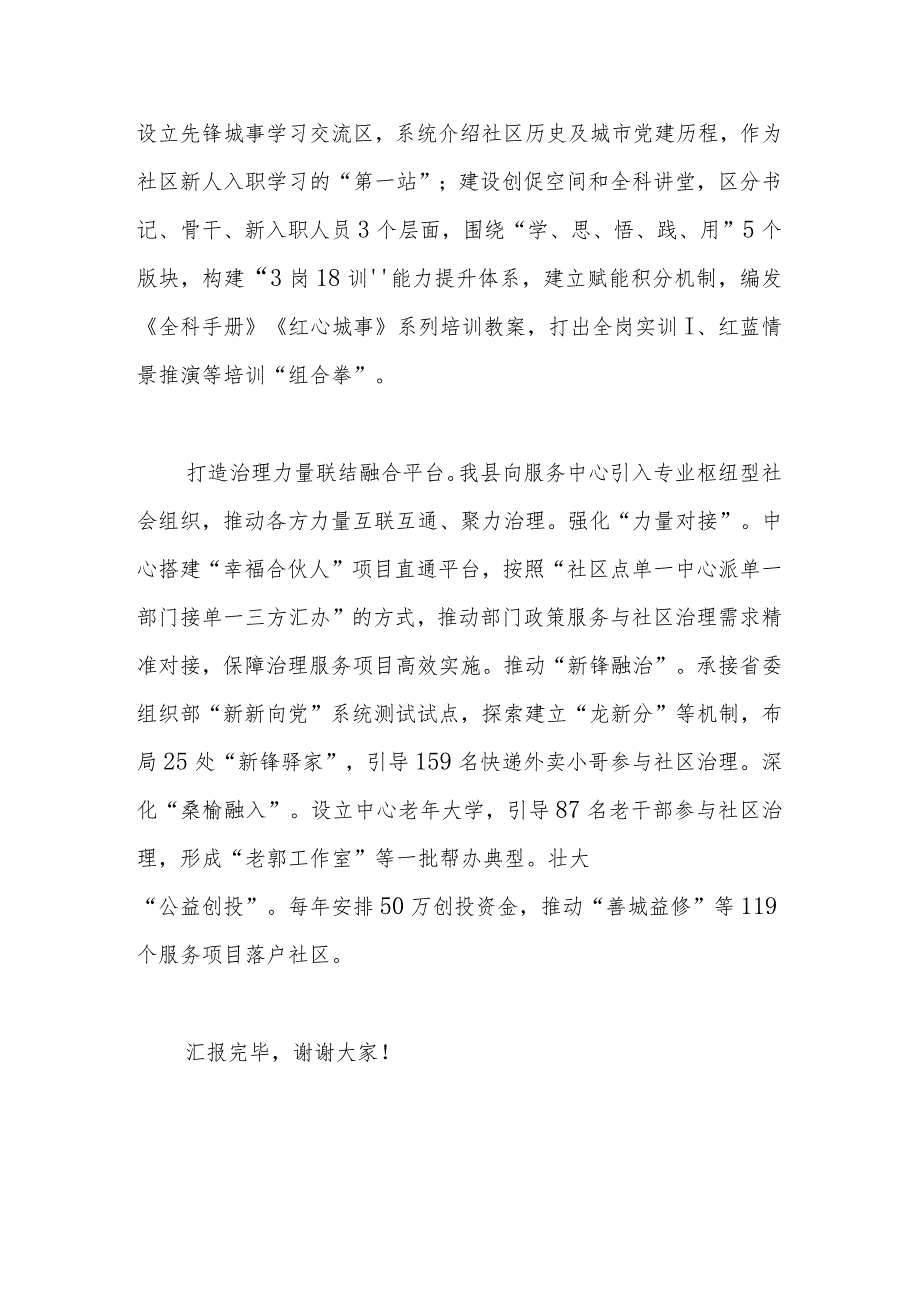 设立先锋城事学习交流区，系统介绍社区历史及城市党建历程，作为
社区新人入职学习的“第一站”；建设创促空间和全科讲堂，区分书
记、骨干、新入职人员3个层面，围绕“学、思、悟、践、用”5个
版块，构建“3岗18训''能力提升体系，建立赋能积分机制，编发
《全科手册》《红心城事》系列培训教案，打出全岗实训I、红蓝情
景推演等培训“组合拳”。
打造治理力量联结融合平台。我县向服务中心引入专业枢纽型社
会组织，推动各方力量互联互通、聚力治理。强化“力量对接”。中
心搭建“幸福合伙人”项目直通平台，按照“社区点单一中心派单一
部门接单一三方汇办”的方式，推动部门政策服务与社区治理需求精
准对接，保障治理服务项目高效实施。推动“新锋融治”。承接省委
组织部“新新向党”系统测试试点，探索建立“龙新分”等机制，布
局25处“新锋驿家”，引导159名快递外卖小哥参与社区治理。深
化“桑榆融入”。设立中心老年大学，引导87名老干部参与社区治
理，形成“老郭工作室”等一批帮办典型。壮大
“公益创投”。每年安排50万创投资金，推动“善城益修”等119
个服务项目落户社区。
汇报完毕，谢谢大家！